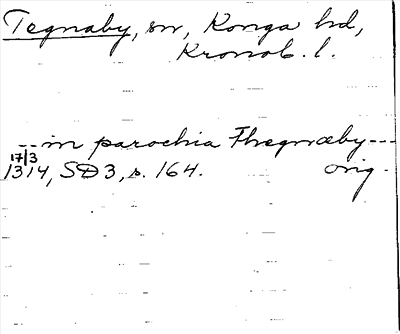 Tegnaby, sn, Konga hd,
Kronob. l.
--- in parochia Thegnæby ---
17/3 1314, SD 3, s. 164. orig.